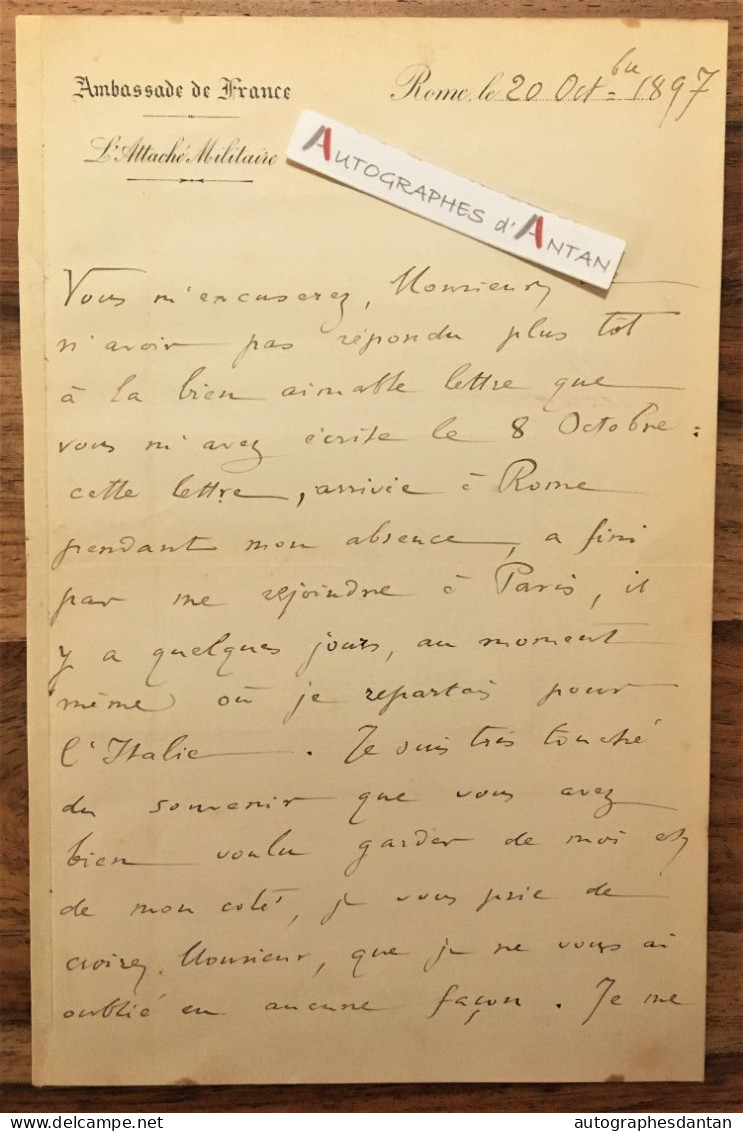 Ambassade de France
Rome, le 20 Oct=bre 1897
L'Attaché Militaire
AUTOGRAPHES d'ANTAN
Vous m'excuserez, Monsieur,
n'avoir pas répondu plus tôt
à la bien aimable lettre que
vous m'avez écrite le 8 Octobre :
cette lettre, arrivée à Rome
pendant mon absence, a fini
par me rejoindre à Paris, il
y a quelques jours, au moment
même où je repartais pour
l'Italie. Je suis très touché
du souvenir que vous avez
bien voulu garder de moi et,
de mon coté, je vous prie de
croire, Monsieur, que je ne vous ai
oublié en aucune façon. Je me
delcampe.net
autographesdantan